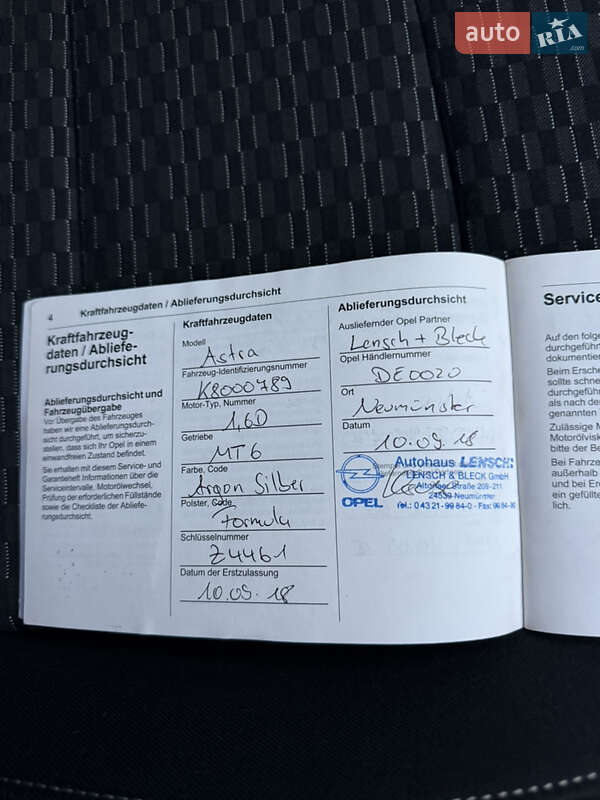 auto RIA.com
4 Kraftfahrzeugdaten / Ablieferungsdurchsicht
Kraftfahrzeug-
daten / Abliefe-
rungsdurchsicht
Ablieferungsdurchsicht und
Fahrzeugübergabe
Vor Übergabe des Fahrzeuges
haben wir eine Ablieferungsdurch-
sicht durchgeführt, um sicherzu-
stellen, dass sich Ihr Opel in einem
einwandfreien Zustand befindet.
Sie erhalten mit diesem Service- und
Garantieheft Informationen über die
Serviceintervalle, Motorölwechsel,
Prüfung der erforderlichen Füllstände
sowie die Checkliste der Abliefe-
rungsdurchsicht.
Kraftfahrzeugdaten
Modell
Astra
Fahrzeug-Identifizierungsnummer
K8000789
Motor-Typ, Nummer
1,6D
Getriebe
MT6
Farbe, Code
Argon Silber
Polster, Code
Formula
Schlüsselnummer
Z4461
Datum der Erstzulassung
10.09.18
Ablieferungsdurchsicht
Ausliefernder Opel Partner
Lensch + Bleck
Opel Händlernummer
DE0020
Ort
Neumünster
Datum
10.09.18
Autohaus LENSCH
LENSCH & BLECK GmbH
Altonaer Straße 209-211
24539 Neumünster
OPEL
Tel.: 0 43 21 - 99 84-0 - Fax: 99 84-30
Service
Auf den folge
durchgeführt
dokumentier
Beim Ersche
sollte schne
durchgeführ
als nach de
genannten
Zulässige M
Motorölvisk
bitte der Be
Bei Fahrze
außerhalb
und bei Er
ein gefüllt
lich.